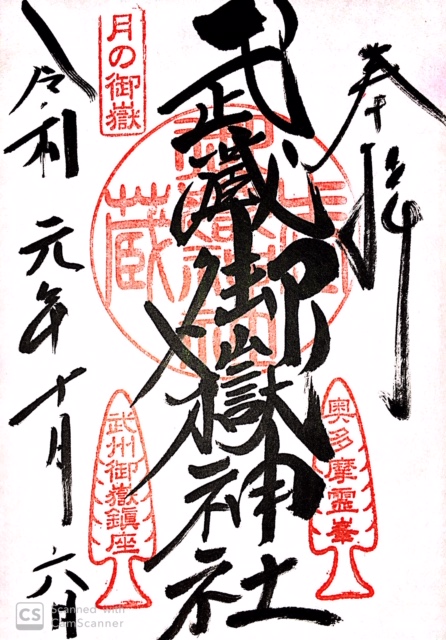 奉拝
奥多摩霊峯
武蔵御嶽神社
月の御嶽
武州御嶽鎮座
令和元年十月六日
CS Scanned with
CamScanner